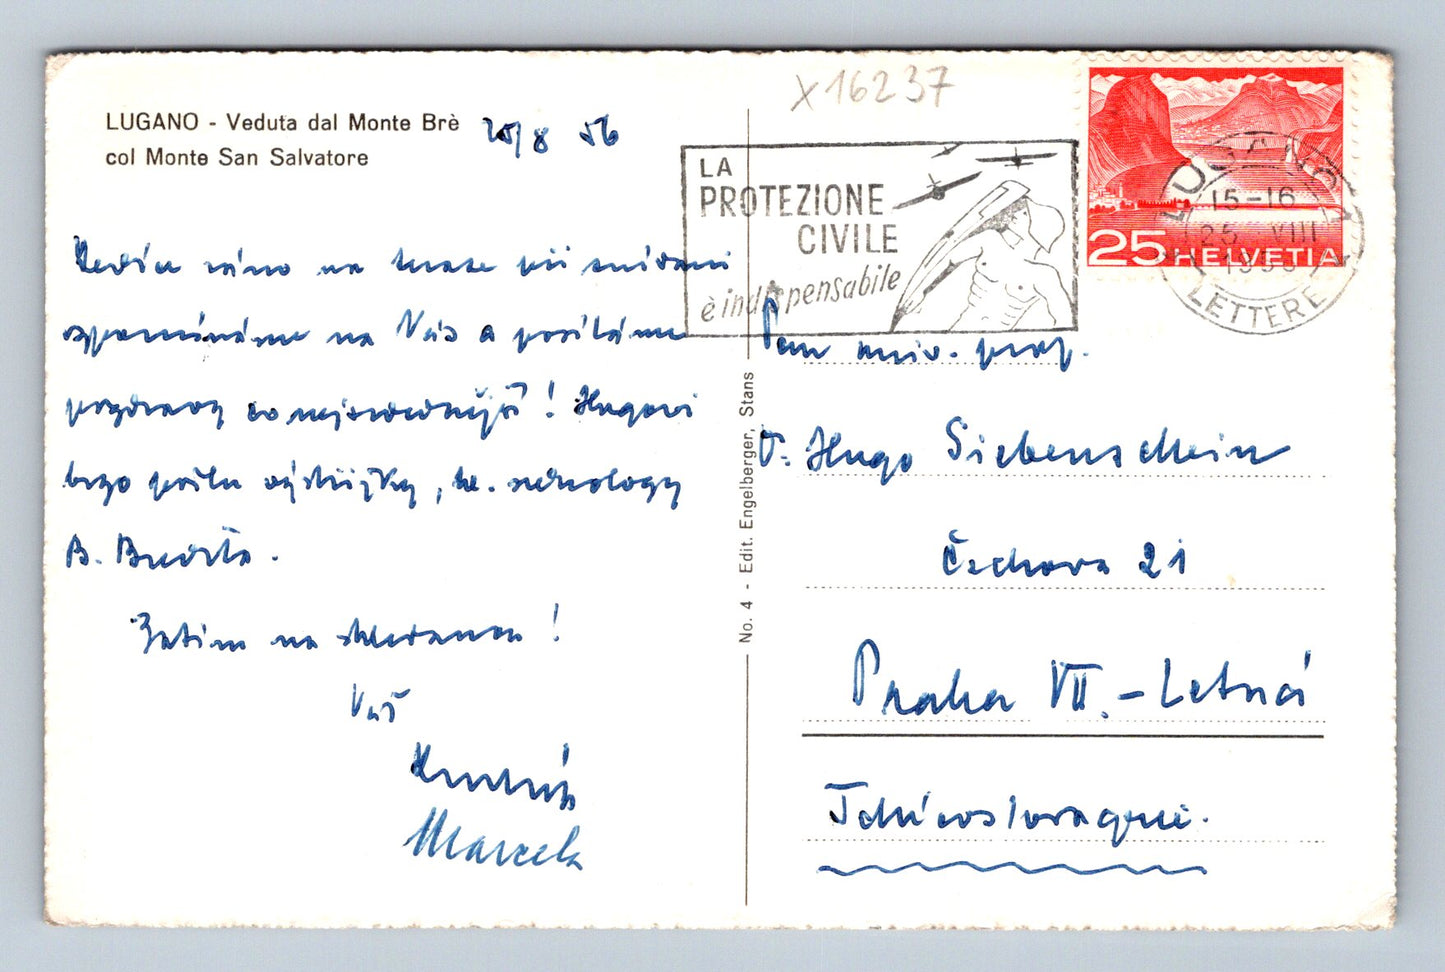 X16237
LUGANO - Veduta dal Monte Brè
col Monte San Salvatore
25/8 56
LA
PROTEZIONE
CIVILE
è indispensabile
25 HELVETIA
LUGANO 1
15-16
25 VIII
1956
LETTERE
ráno na terase při snídani
vzpomínáme na Vás a posíláme
pozdravy co nejsrdečnější! Hugovi
brzo pošlu výstřižky, . nekrology
B. Brechta.
Zatím na shledanou!
Váš
Marcela
No. 4 - Edit. Engelberger, Stans
Pan univ. prof.
Dr. Hugo Siebenschein
Čechova 21
Praha VII. - Letná
Tchécoslovaquie.